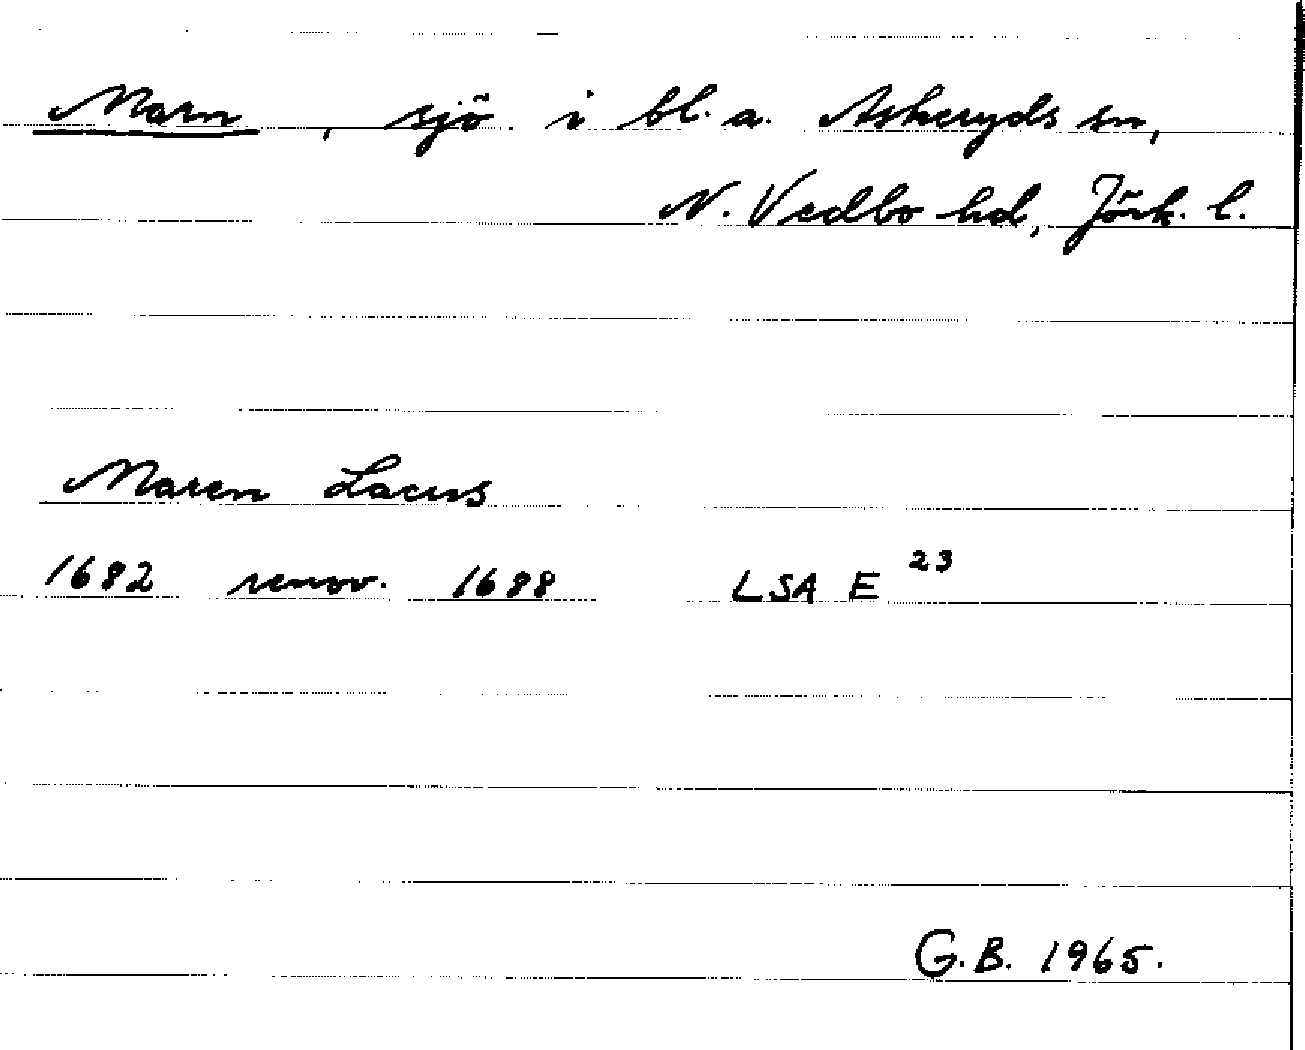 Marn, sjö i bl. a. Askeryds sn,
N. Vedbo hd, Jönk. l.
Maren Lacus
1682 renov. 1688 LSA E 23
G.B. 1965.